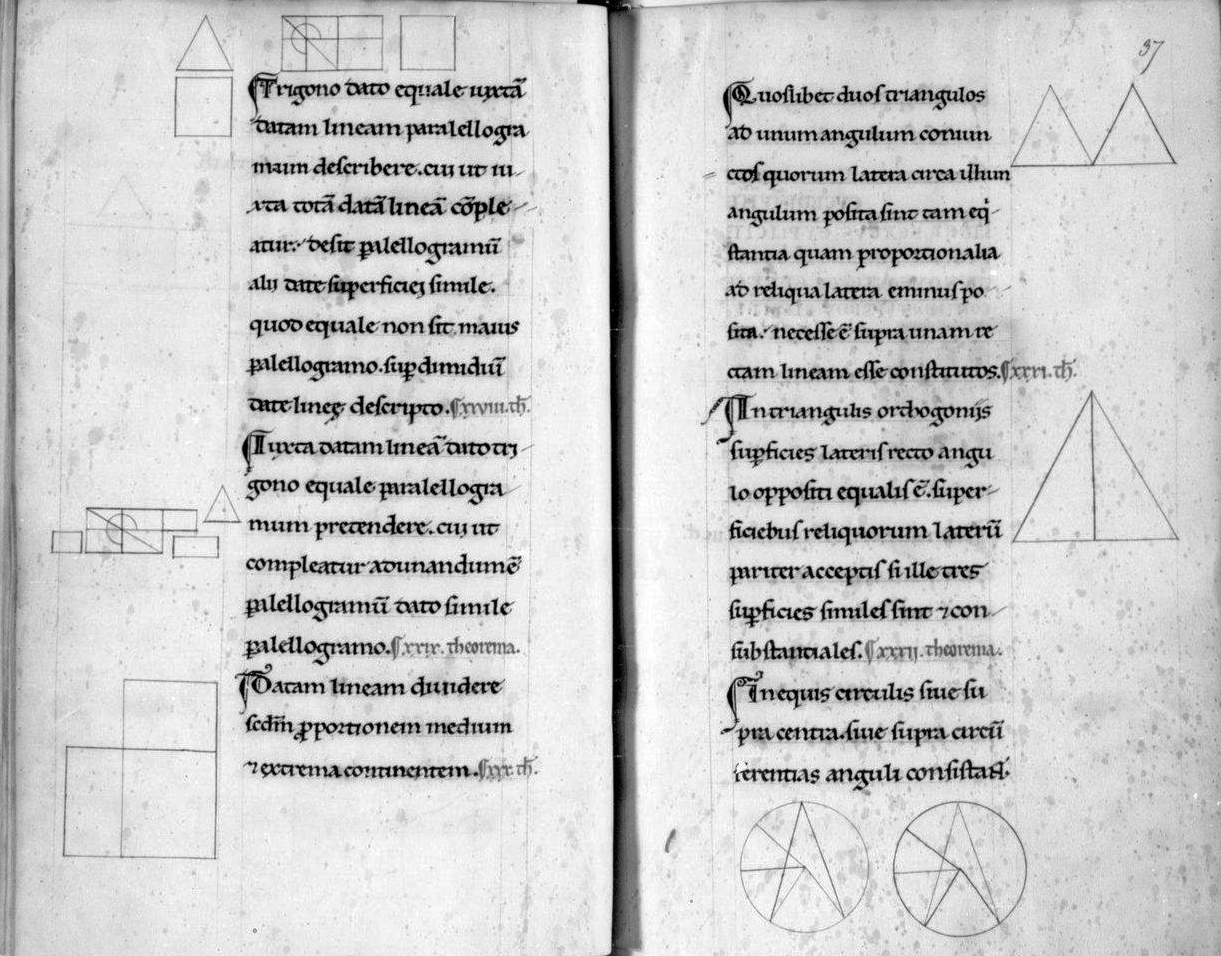 ¶Trigono dato equale iuxtã
datam lineam paralellogra
mum describere. cui ut iu-
xta totã datã lineã cõple-
atur: desit paralellogramũ
alij date superficiei simile.
quod equale non sit. maius
paralellogramo. sup dimidiũ
date lineę descripto. ¶xxviii. th̃.
¶Iuxta datam lineã dato tri-
gono equale paralellogra-
mum pretendere. cui ut
compleatur adunandum ẽ
palellogramũ dato simile
palellogramo. ¶xxix. theorema.
¶Datam lineam diuidere
scdm̃ proportionem medium
⁊ extrema continentem. ¶xxx. th̃.
37
¶Quoslibet duos triangulos
ad unum angulum coniun
ctos quorum latera circa illum
angulum posita sint tam eq̓-
stantia quam proportionalia
ad reliqua latera eminus po-
sita: necesse ẽ supra unam re
ctam lineam esse constitutos. ¶xxxi. th̃.
¶In triangulis orthogonijs
supficies lateris recto angu
lo oppositi equalis ẽ. super-
ficiebus reliquorum laterũ
pariter acceptis si ille tres
supficies similes sint ⁊ con-
substantiales. ¶xxxii. theorema.
¶In equis circulis siue su
pra centra. siue supra circũ
ferentias anguli consistant.